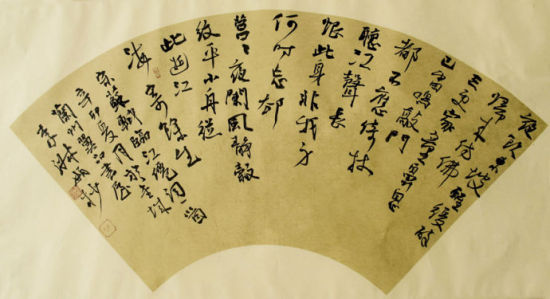 夜飲東坡醒復醉
歸來仿佛
三更家童鼻息
已雷鳴敲門
都不應倚杖
聽江聲長
恨此身非我有
何時忘却
營々夜闌風靜縠
紋平小舟從
此逝江
海寄餘生詞一首
宋蘇軾臨江仙
辛卯夏月
蘭州書屋
李